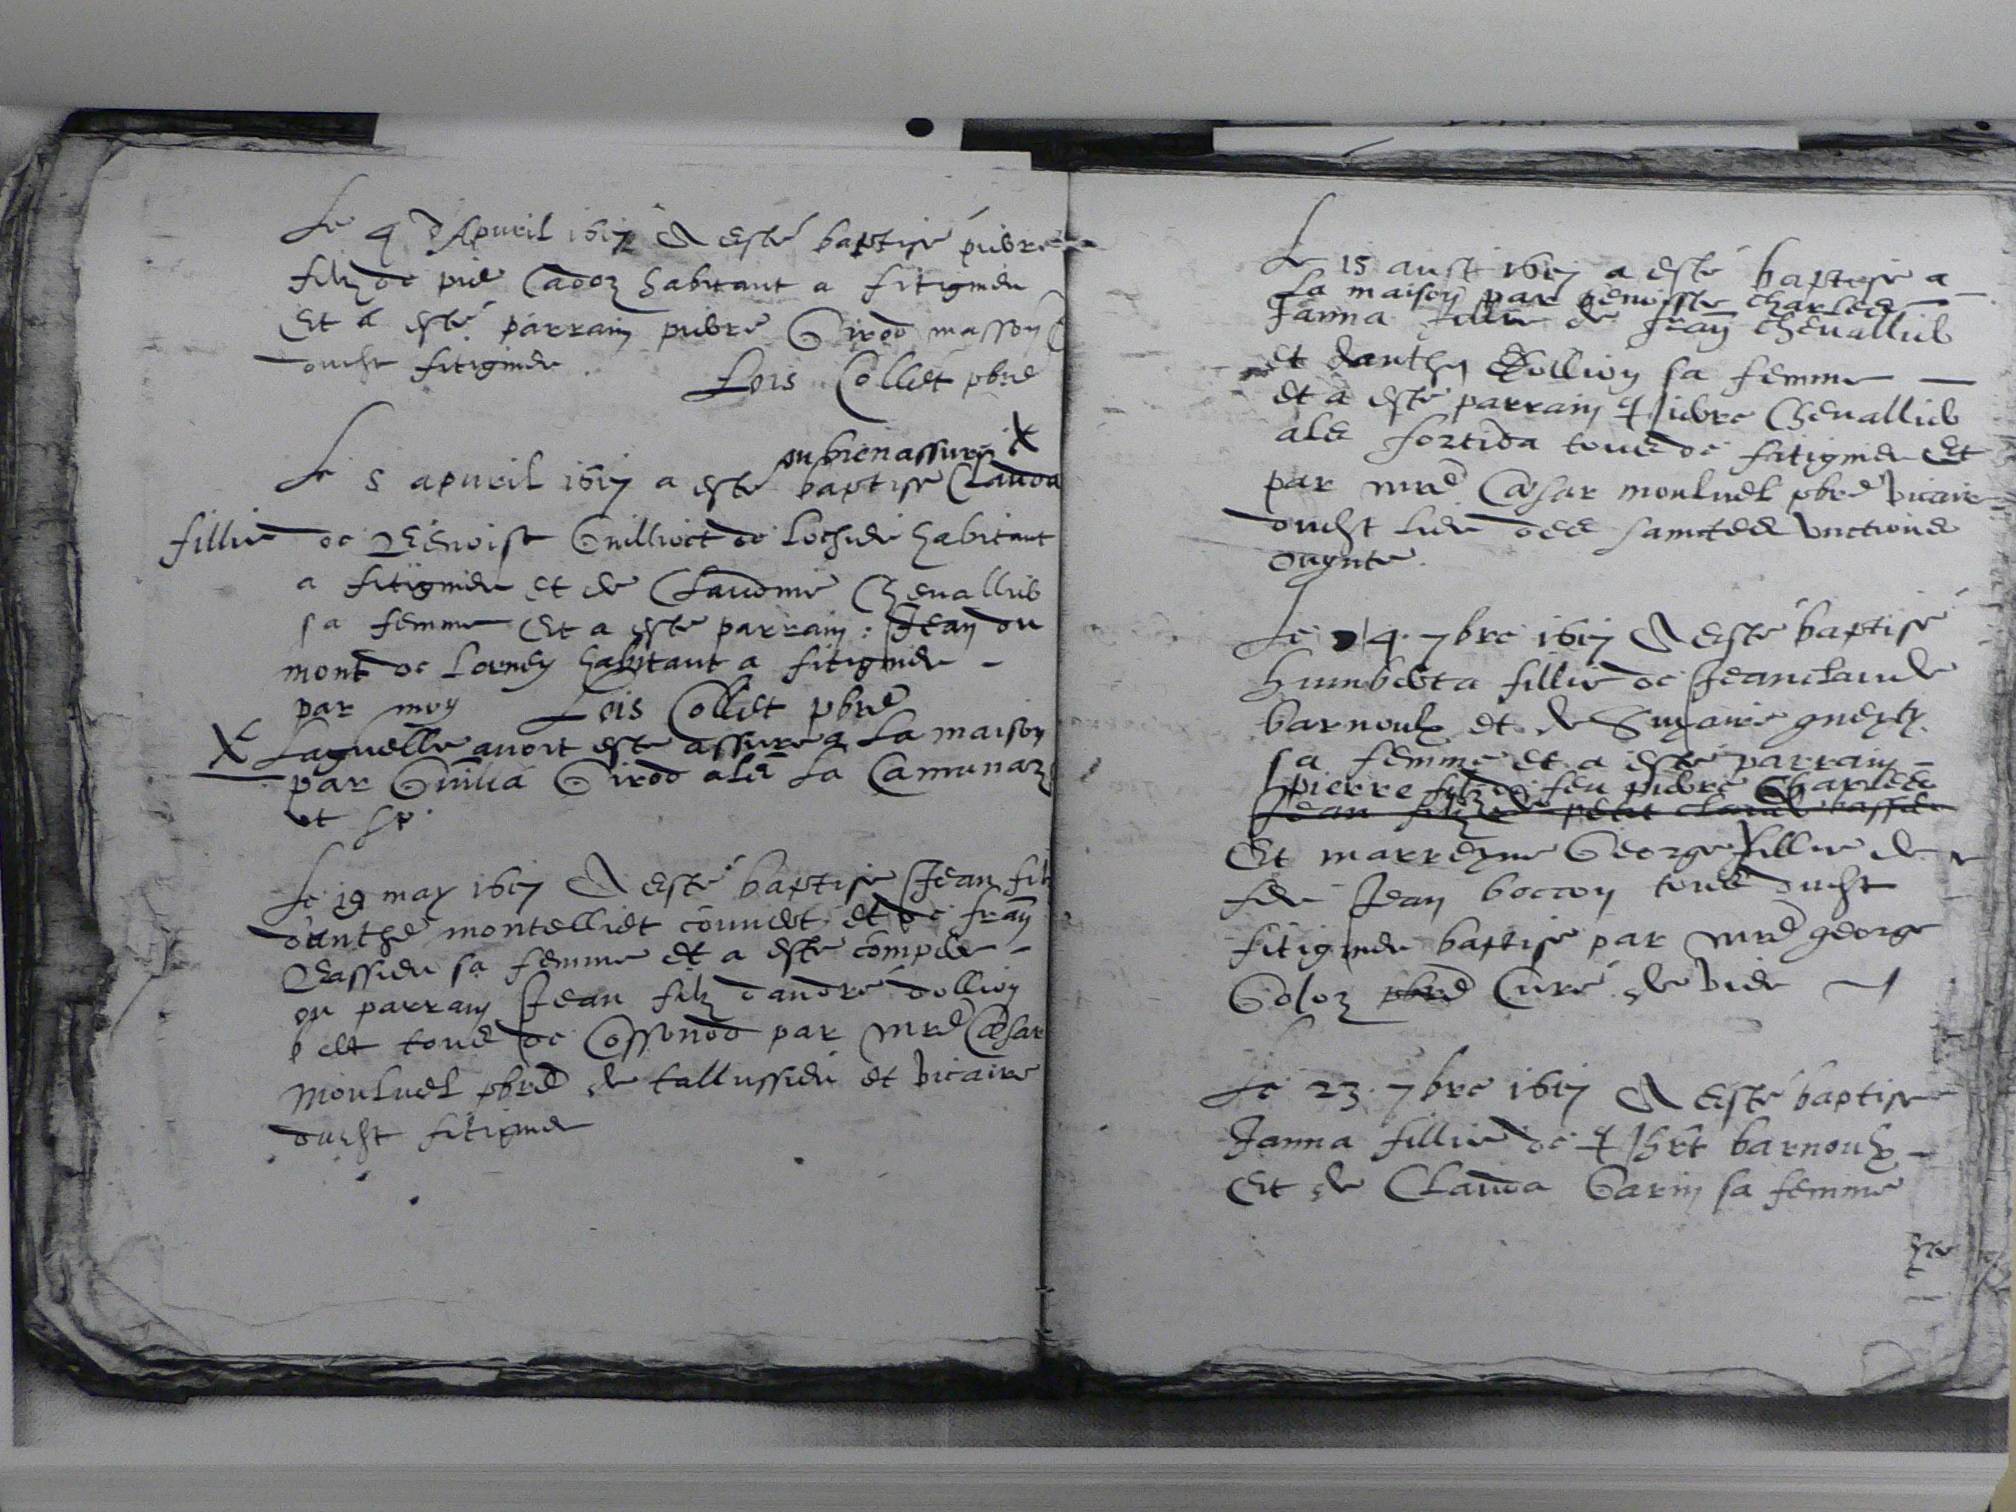 Le 4 d Apuril 1617 A esté baptisé pierre
filz de pre Cadoz habitant a fitignieu
Et a esté parrain pierre Girod masson
dudst fitignieu
Lois Colliet pbre
ou bien assuré X
Le 5 apuril 1617 a esté baptisé Clauda
fillie de Benoist Guilliot de Lochieu habitant
a fitignieu et de Claudine Chevallier
sa femme Et a esté parrain : Jean du
mont de habitant a fitignieu
par moy Lois Colliet pbre
X Laquelle avoit esté assuree a La maison
par Girod ales La
et
Le 19 may 1617 A esté baptisé Jean filz
d'anthe montelliet et de fran
sa femme et a esté
ou parrain Jean filz d'andré dollion
tous de Cossonod par mre Cæsar
monluel pbre de tallussieu et vicaire
dudst fitignieu
Le 15 aust 1617 a esté baptisé a
La maison par benoiste Charles
Janna fillie de fran Chevallier
et dantha Dollion sa femme
et a esté parrain pierre Chevallier
ales tous de fitignieu Et
par mre Cæsar monluel pbre vicaire
dudst lieu des sainctes unctions
ougnte.
Le 4 7bre 1617 A esté baptisé
humberta fillie de Jeanclaude
barnoulx et de
sa femme et a esté parrain
pierre filz de feu pierre Charles
Jean filz de petit Claude
Et marreyne George fillie de
feu Jean boccon tous dudst
fitignieu baptisé par mre george
Goloz pbre Curé de vieu
Le 23 7bre 1617 A esté baptisé
Janna fillie de barnoulx
Et de Clauda Garin sa femme